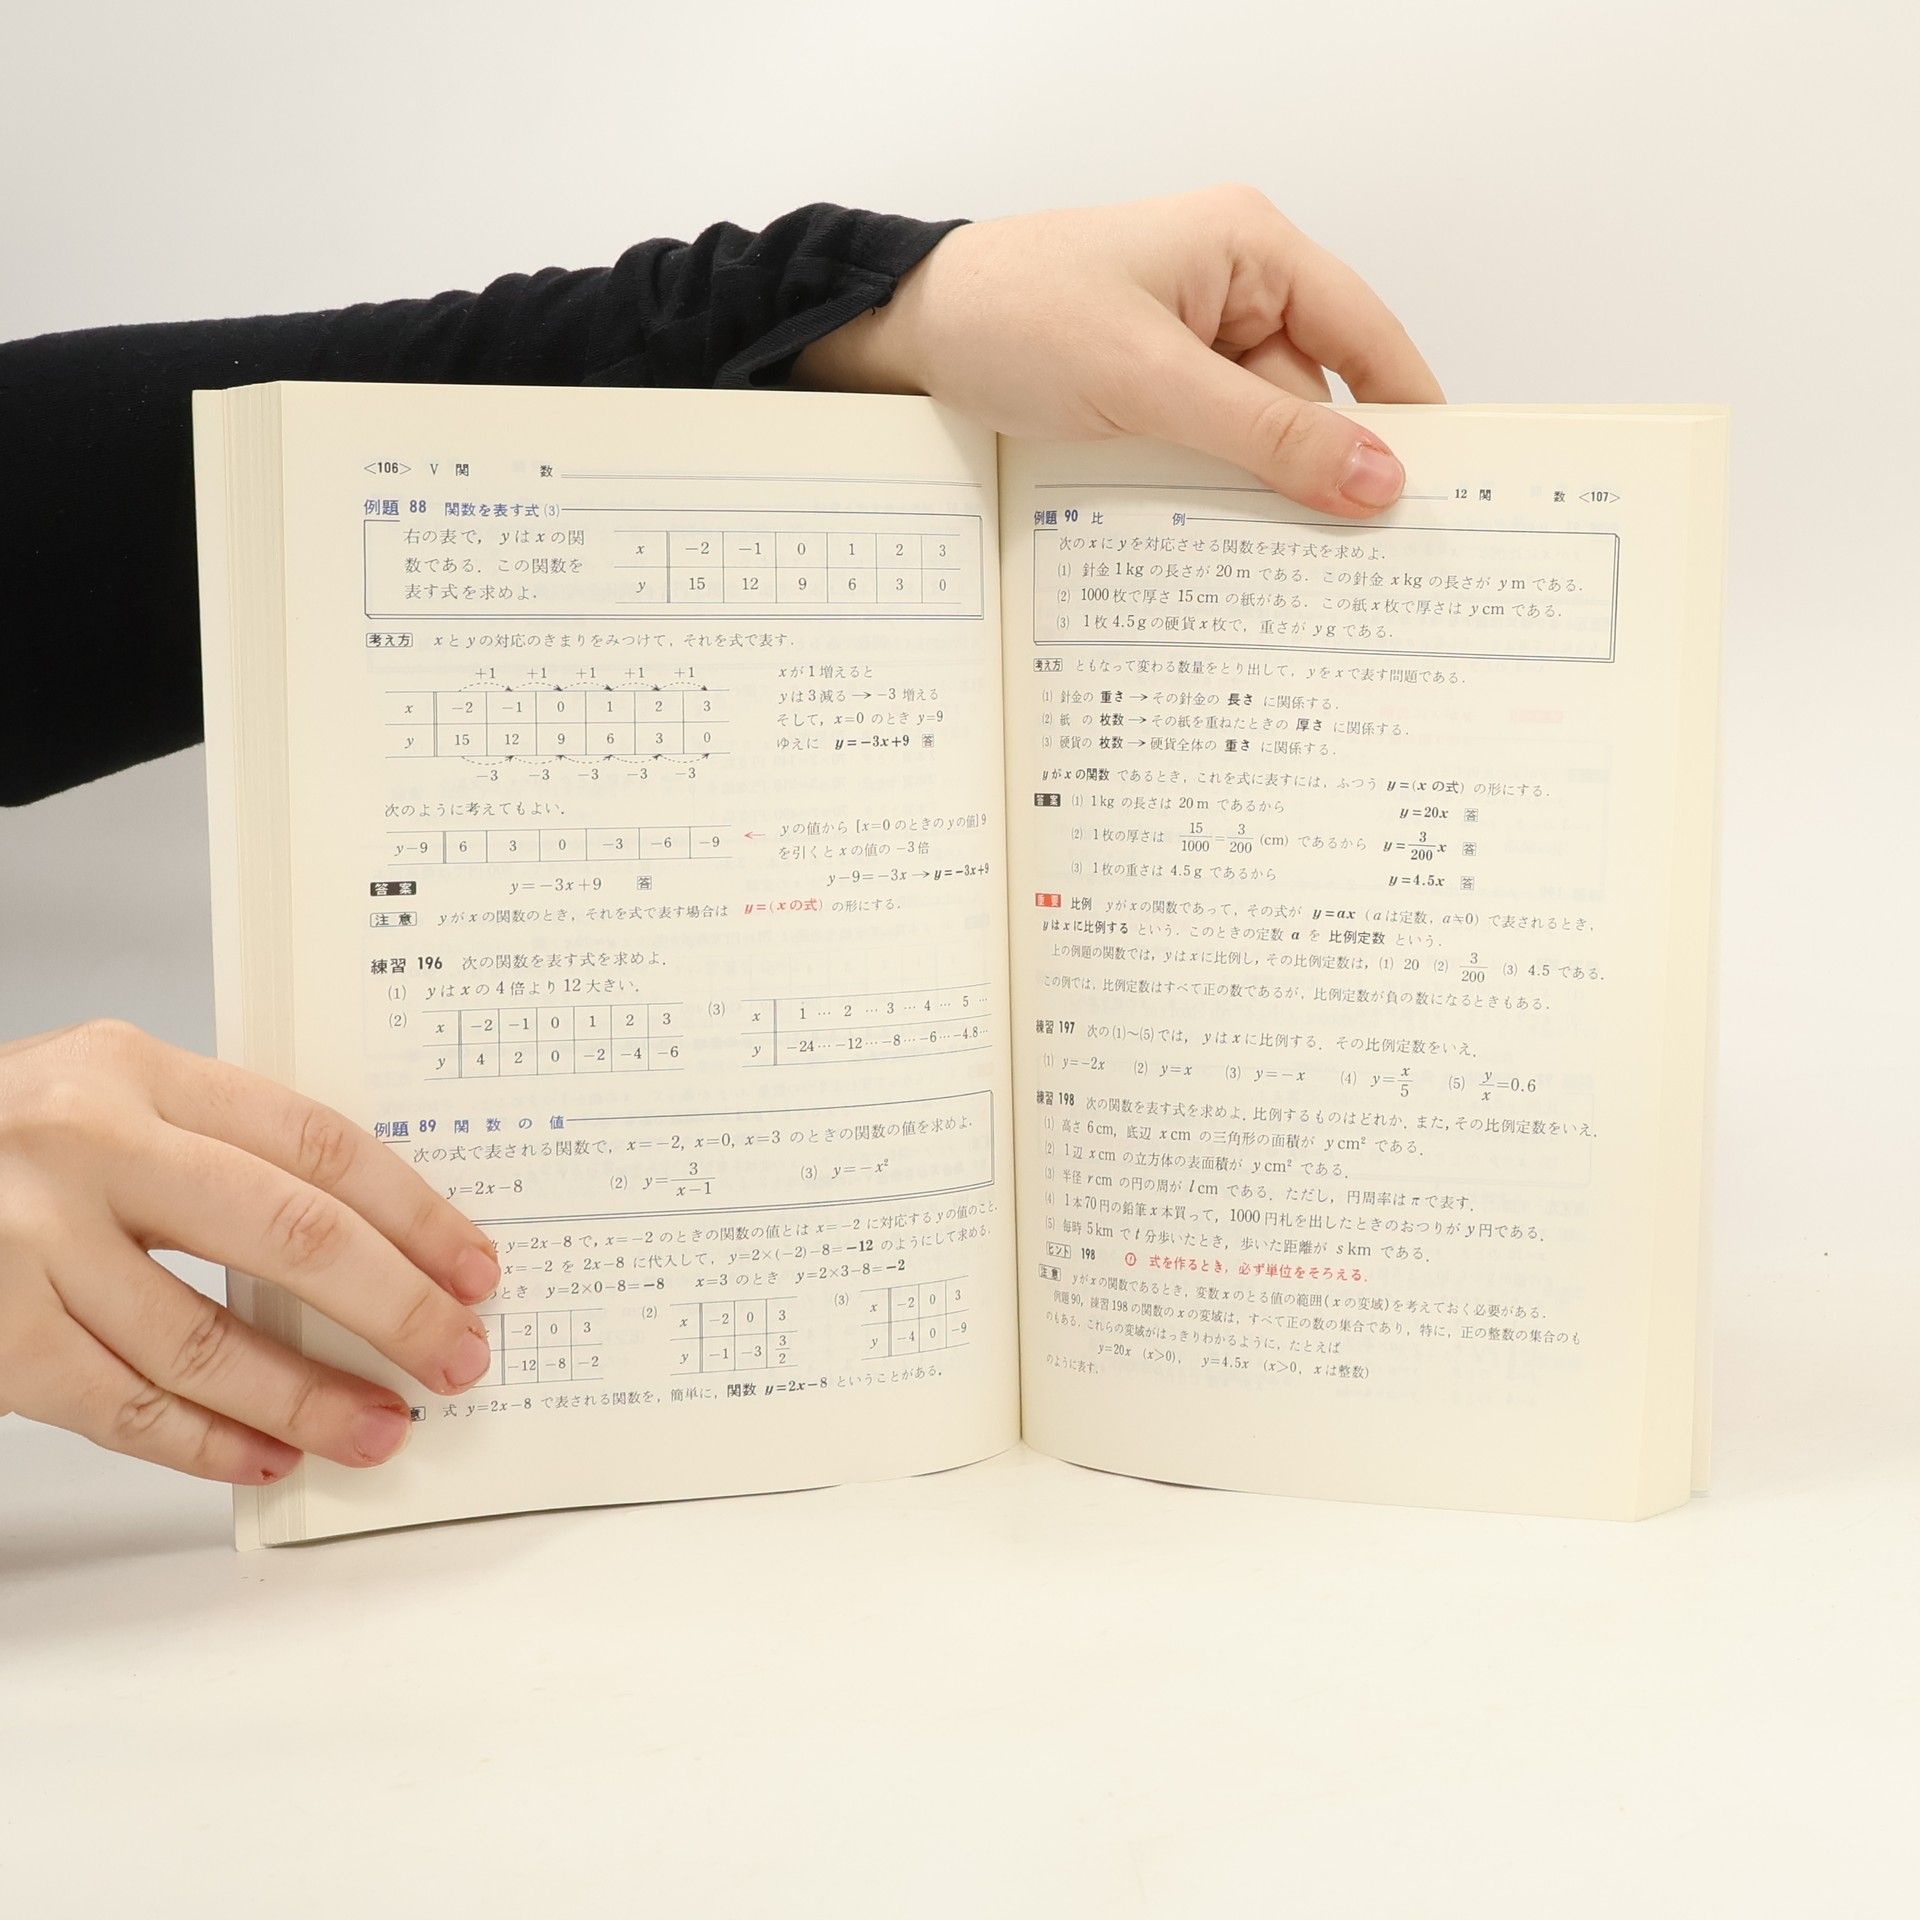 <106> V 関 数
例題 88 関数を表す式(3)
右の表で，yはxの関
数である．この関数を
表す式を求めよ．
x -2 -1 0 1 2 3
y 15 12 9 6 3 0
考え方 xとyの対応のきまりをみつけて，それを式で表す．
+1 +1 +1 +1 +1
x -2 -1 0 1 2 3
y 15 12 9 6 3 0
-3 -3 -3 -3 -3
xが1増えると
yは3減る→-3増える
そして，x=0 のとき y=9
ゆえに y=-3x+9 答
次のように考えてもよい．
y-9 6 3 0 -3 -6 -9
← yの値から [x=0のときのyの値] 9
を引くとxの値の-3倍
y-9=-3x→y=-3x+9
答案 y=-3x+9 答
注意 yがxの関数のとき，それを式で表す場合は y=(xの式) の形にする．
練習 196 次の関数を表す式を求めよ．
(1) yはxの4倍より12大きい．
(2)
x -2 -1 0 1 2 3
y 4 2 0 -2 -4 -6
(3)
x 1 … 2 … 3 … 4 … 5 …
y -24 … -12 … -8 … -6 … -4.8 …
例題 89 関数の値
次の式で表される関数で，x=-2, x=0, x=3 のときの関数の値を求めよ．
y=2x-8 (2) y=3/(x-1) (3) y=-x²
y=2x-8 で，x=-2 のときの関数の値とは x=-2 に対応するyの値のこと．
x=-2 を 2x-8 に代入して，y=2×(-2)-8=-12 のようにして求める．
とき y=2×0-8=-8 x=3 のとき y=2×3-8=-2
-2 0 3
-12 -8 -2
(2)
x -2 0 3
y -1 -3 3/2
(3)
x -2 0 3
y -4 0 -9
意 式 y=2x-8 で表される関数を，簡単に，関数 y=2x-8 ということがある．
12 関 数 <107>
例題 90 比 例
次のxにyを対応させる関数を表す式を求めよ．
(1) 針金1kgの長さが20mである．この針金xkgの長さがymである．
(2) 1000枚で厚さ15cmの紙がある．この紙x枚で厚さはycmである．
(3) 1枚4.5gの硬貨x枚で，重さがygである．
考え方 ともなって変わる数量をとり出して，yをxで表す問題である．
(1) 針金の 重さ→その針金の 長さ に関係する．
(2) 紙 の 枚数→その紙を重ねたときの 厚さ に関係する．
(3) 硬貨の 枚数→硬貨全体の 重さ に関係する．
yがxの関数 であるとき，これを式に表すには，ふつう y=(xの式) の形にする．
答案 (1) 1kgの長さは 20m であるから y=20x 答
(2) 1枚の厚さは 15/1000=3/200 (cm) であるから y=3/200 x 答
(3) 1枚の重さは 4.5g であるから y=4.5x 答
重要 比例 yがxの関数であって，その式が y=ax (aは定数，a≒0) で表されるとき，
yはxに比例する という．このときの定数 a を 比例定数 という．
上の例題の関数では，yはxに比例し，その比例定数は，(1) 20 (2) 3/200 (3) 4.5 である．
この例では，比例定数はすべて正の数であるが，比例定数が負の数になるときもある．
練習 197 次の(1)～(5)では，yはxに比例する．その比例定数をいえ．
(1) y=-2x (2) y=x (3) y=-x (4) y=x/5 (5) y/x=0.6
練習 198 次の関数を表す式を求めよ．比例するものはどれか．また，その比例定数をいえ．
(1) 高さ6cm，底辺 xcm の三角形の面積が ycm² である．
(2) 1辺 xcm の立方体の表面積が ycm² である．
(3) 半径 rcm の円の周が lcm である．ただし，円周率はπで表す．
(4) 1本70円の鉛筆x本買って，1000円札を出したときのおつりがy円である．
(5) 毎時5kmでt分歩いたとき，歩いた距離が skm である．
ヒント 198 式を作るとき，必ず単位をそろえる．
注意 yがxの関数であるとき，変数xのとる値の範囲(xの変域)を考えておく必要がある．
例題90，練習198の関数のxの変域は，すべて正の数の集合であり，特に，正の整数の集合のも
のもある．これらの変域がはっきりわかるように，たとえば
y=20x (x>0)， y=4.5x (x>0, xは整数)
のように表す．